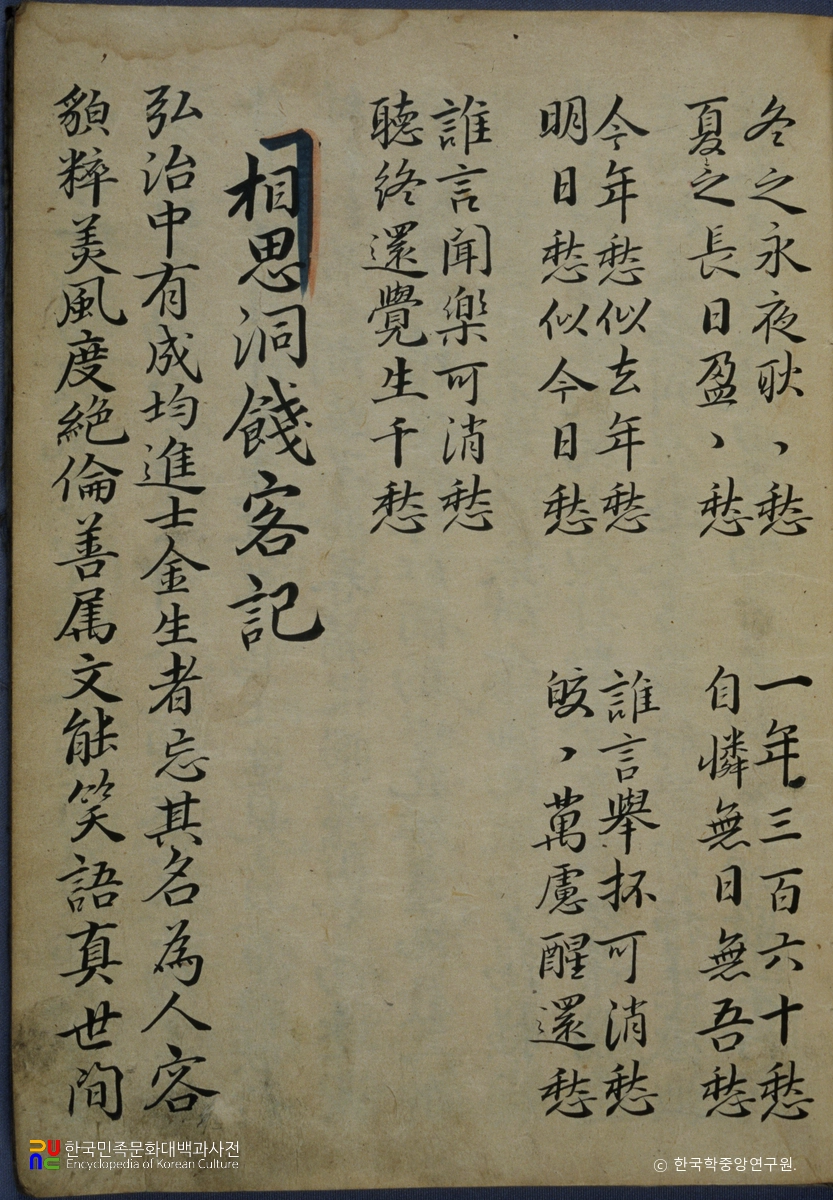 冬之永夜耿丶愁
夏之長日盈丶愁
一年三百六十愁
自憐無日無吾愁
今年愁似去年愁
明日愁似今日愁
誰言舉杯可消愁
皎丶萬慮醒還愁
誰言聞樂可消愁
聽終還覺生千愁
相思洞餞客記
弘治中有成均進士金生者忘其名為人容
䫉粹美風度絕倫善属文能笑語真世間
한국민족문화대백과사전
Encyclopedia of Korean Culture
ⓒ 한국학중앙연구원.